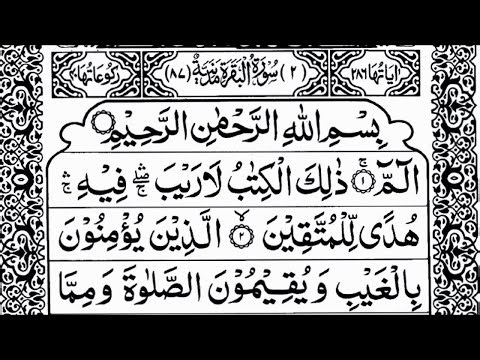 اٰیاتها ٢٨٦ (٢) سُوْرَةُ الْبَقَرَةِ مَدَنِيَّةٌ (٨٧) رکوعاتها ٤٠
بِسْمِ اللّٰهِ الرَّحْمٰنِ الرَّحِيْمِ
الٓمّٓ ۚ﴿١﴾ ذٰلِكَ الْكِتٰبُ لَا رَيْبَ ۛۖ فِيْهِ ۛۚ
هُدًى لِّلْمُتَّقِيْنَ ۙ﴿٢﴾ الَّذِيْنَ يُؤْمِنُوْنَ
بِالْغَيْبِ وَيُقِيْمُوْنَ الصَّلٰوةَ وَمِمَّا